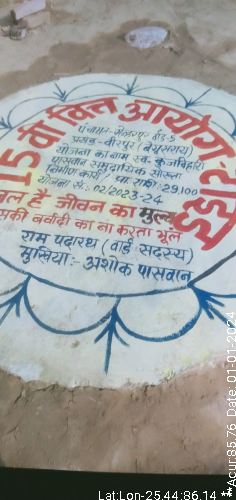 15 वी वित्त आयोग-टाइड
पंचायत-गेन्हरपुर वार्ड-5
प्रखंड-वीरपुर (बेगूसराय)
योजना का नाम स्व. कुंजबिहारी
पासवान समुदायिक सोख्ता
निर्माण कार्य
राशी:29,100
योजना सं.: 02/2023-24
जल है जीवन का मुल्य
इसकी बर्बादी का ना करना भूल
राम पदारथ (वार्ड सदस्य)
मुखिया:- अशोक पासवान
Lat:Lon-25.44:86.14 **Acur:85.76 Date: 01-01-2024